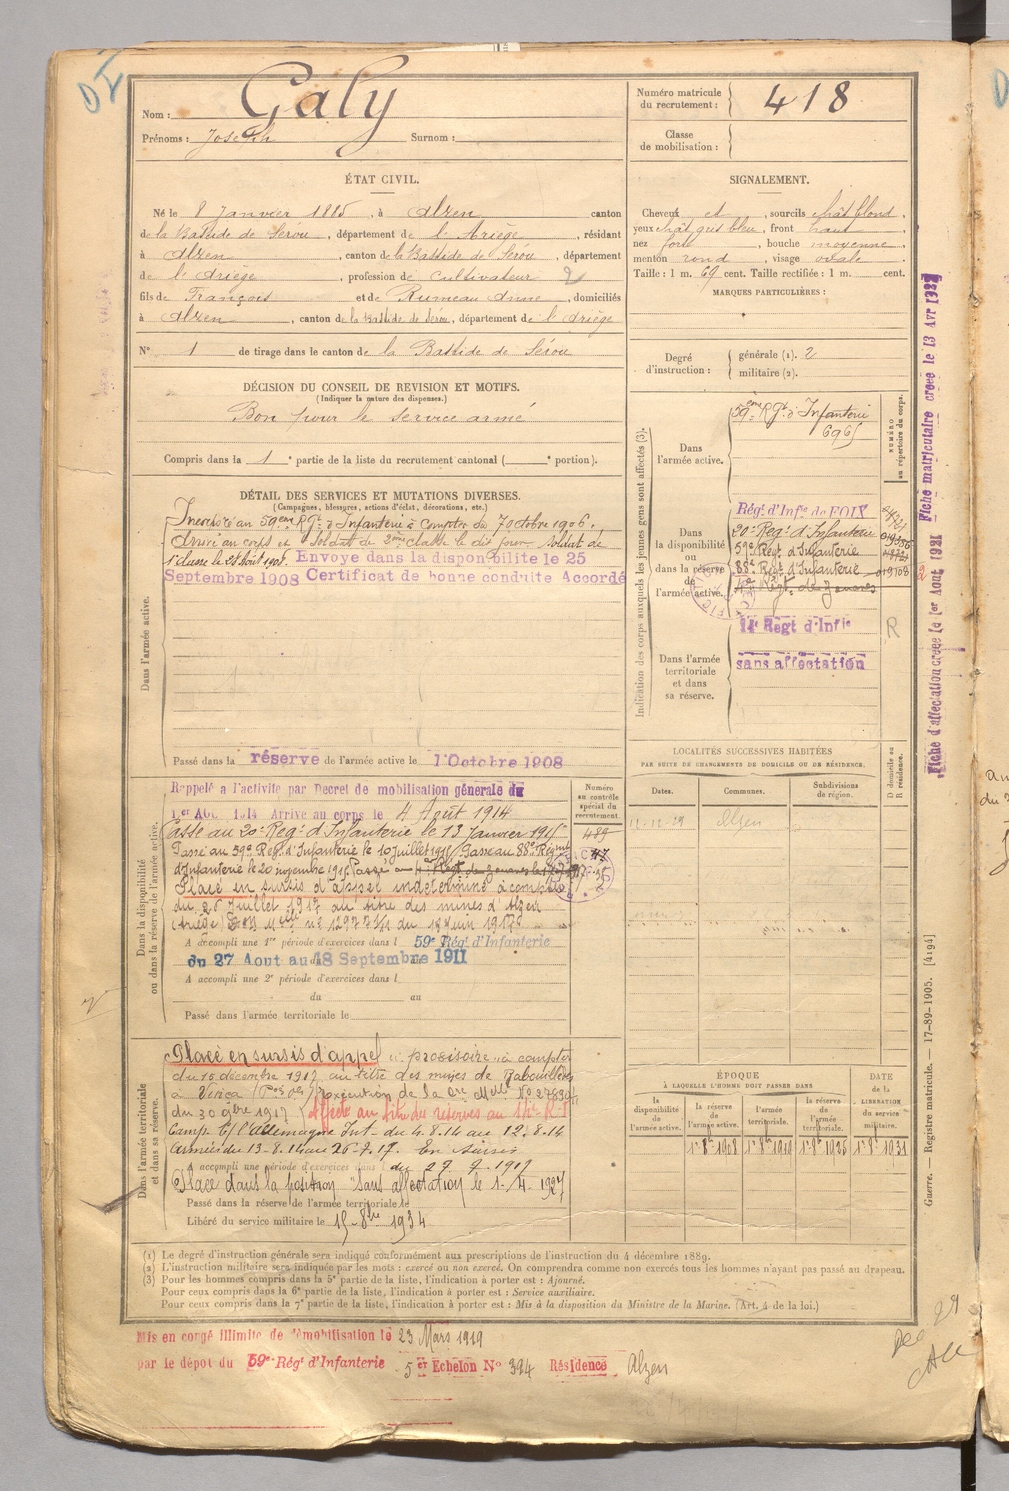 Nom : Galy
Prénoms : Joseph Surnom :
Numéro matricule du recrutement : 418
Classe de mobilisation :
ÉTAT CIVIL.
Né le 8 Janvier 1885, à Alzen canton
de la Bastide de Serou, département de l'Ariège, résidant
à Alzen, canton de la Bastide de Sérou, département
de l'Ariège, profession de Cultivateur 2
fils de François et de Rumeau Anne, domiciliés
à Alzen, canton de la Bastide de Sérou, département de l'Ariège
N° 1 de tirage dans le canton de la Bastide de Sérou
SIGNALEMENT.
Cheveux et, sourcils chât blond,
yeux chât gris bleu, front haut
nez fort, bouche moyenne
menton rond, visage ovale.
Taille : 1 m. 69 cent. Taille rectifiée : 1 m. cent.
MARQUES PARTICULIÈRES :
Degré d'instruction : générale (1). 2
militaire (2).
DÉCISION DU CONSEIL DE REVISION ET MOTIFS.
(Indiquer la nature des dispenses.)
Bon pour le service armé
Compris dans la 1e partie de la liste du recrutement cantonal ( e portion).
DÉTAIL DES SERVICES ET MUTATIONS DIVERSES.
(Campagnes, blessures, actions d'éclat, décorations, etc.)
Dans l'armée active.
Incorporé au 59eme Rgt d'Infanterie à Compter du 7 octobre 1906.
Arrivé au corps et soldat de 2me classe le dit jour. Soldat de
1e classe le 28 Août 1908. Envoye dans la disponibilite le 25
Septembre 1908 Certificat de bonne conduite Accordé
Passé dans la réserve de l'armée active le 1 Octobre 1908
Indication des corps auxquels les jeunes gens sont affectés (3).
NUMÉRO au répertoire du corps.
Dans l'armée active.
59eme Rgt d'Infanterie
6965
Dans la disponibilité ou dans la réserve de l'armée active.
Régt d'Infie de FOIX
20e Regt d'Infanterie
59e Régt d'Infanterie
88e Régt d'Infanterie 019708
4e Régt de Zouaves
14e Regt d'Infie
R
Dans l'armée territoriale et dans sa réserve.
sans affectation
Fiche matriculaire creee le 13 Avr 1927
Fiche d'affectation creee le 1er Aout 1921
LOCALITÉS SUCCESSIVES HABITÉES
PAR SUITE DE CHANGEMENTS DE DOMICILE OU DE RÉSIDENCE.
Dates. Communes. Subdivisions de région. D domicile ou R résidence.
11-12-29 Alzen
Dans la disponibilité ou dans la réserve de l'armée active.
Numéro au contrôle spécial du recrutement.
489
Rappelé a l'activite par Decret de mobilisation générale du
1er AOU 1914 Arrive au corps le 4 Août 1914
Passé au 20e Regt d'Infanterie le 13 Janvier 1915
Passé au 59e Reg. d'Infanterie le 10 Juillet 1915 Passé au 88e Régimt
d'Infanterie le 20 novembre 1915 Passé au 4e Régt de Zouaves
Placé en sursis d'appel indéterminé à compter
du 26 Juillet 1917 au titre des mines d'Alzen
(Ariège) n° 12977 du 18 Juin 1917
A accompli une 1re période d'exercices dans l 59e Régt d'Infanterie
du 27 Aout au 18 Septembre 1911
A accompli une 2e période d'exercices dans l
du au
Passé dans l'armée territoriale le
Dans l'armée territoriale et dans sa réserve.
Placé en sursis d'appel provisoire à compter
du 10 décembre 1917 au titre des mines de Rabouillèdes
à Vivica
du 30 9bre 1917 Affecté au titre des réserves au 14e R.I
Camp. C/ l'Allemagne Int. du 4.8.14 au 12.8.14
Armées du 13-8-14 au 26-7-17. En Sursis
A accompli une période d'exercices dans l du 27-7-1917
Placé dans la position "Sans affectation" le 1-4-1927
Passé dans la réserve de l'armée territoriale le
Libéré du service militaire le 15-8bre 1934
ÉPOQUE À LAQUELLE L'HOMME DOIT PASSER DANS
la disponibilité de l'armée active. la réserve de l'armée active. l'armée territoriale. la réserve de l'armée territoriale.
DATE de la LIBÉRATION du service militaire.
1r 8bre 1908 1r 8bre 1919 1r 8bre 1925 1r 8bre 1931
Guerre. — Registre matricule. — 17-89-1905. [4194]
(1) Le degré d'instruction générale sera indiqué conformément aux prescriptions de l'instruction du 4 décembre 1889.
(2) L'instruction militaire sera indiquée par les mots : exercé ou non exercé. On comprendra comme non exercés tous les hommes n'ayant pas passé au drapeau.
(3) Pour les hommes compris dans la 5e partie de la liste, l'indication à porter est : Ajourné.
Pour ceux compris dans la 6e partie de la liste, l'indication à porter est : Service auxiliaire.
Pour ceux compris dans la 7e partie de la liste, l'indication à porter est : Mis à la disposition du Ministre de la Marine. (Art. 4 de la loi.)
Mis en congé illimité de démobilisation le 23 Mars 1919
par le dépot du 59e Régt d'Infanterie 5er Echelon N° 394 Résidence Alzen